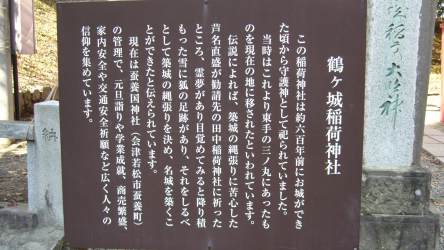 鶴ヶ城稲荷神社
この稲荷神社は約六百年前にお城ができ
た頃から守護神として祀られていました。
当時はこれより東手の三ノ丸にあったも
のを現在の地に移されたといわれています。
伝説によれば、築城の縄張りに苦心した
芦名直盛が勧請先の田中稲荷神社に祈った
ところ、霊夢があり目覚めてみると降り積
もった雪に狐の足跡があり、それをしるべ
として築城の縄張りを決め、名城を築くこ
とができたと伝えられています。
現在は蚕養国神社(会津若松市蚕養町)
の管理で、元旦詣りや学業成就、商売繁盛、
家内安全や交通安全祈願など広く人々の
信仰を集めています。
大明神
納